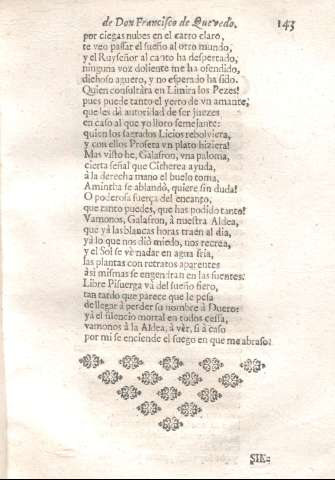 de Don Francisco de Quevedo. 143
por ciegas nubes en el carro claro,
te veo passar el sueño al otro mundo,
y el Ruyseñor al canto ha despertado,
ninguna voz doliente me ha ofendido,
dichoso aguero, y no esperado ha sido.
Quien consultàra en Limira los Pezes!
pues puede tanto el yerto de vn amante,
que les dà autoridad de ser juezes
en caso al que yo lloro semejante:
quien los sagrados Licios rebolviera,
y con ellos Profeta vn plato hiziera!
Mas visto he, Galafron, vna paloma,
cierta señal que Citherea ayuda,
à la derecha mano el buelo toma,
Amintha se ablandò, quiere sin duda!
O poderosa fuerça del encanto,
que tanto puedes, que has podido tanto!
Vamonos, Galafron, à nuestra Aldea,
que yà las blancas horas traen al dia,
yà lo que nos diò miedo, nos recrea,
y el Sol se vè nadar en agua fria,
las plantas con retratos aparentes
à si mismas se engendran en las fuentes.
Libre Pisuerga và del sueño fiero,
tan tardo que parece que le pesa
de llegar à perder su nombre à Duero:
yà el silencio mortal en todos cessa,
vamonos à la Aldea, à vèr, si à caso
por mi se enciende el fuego en que me abraso.
SIL-